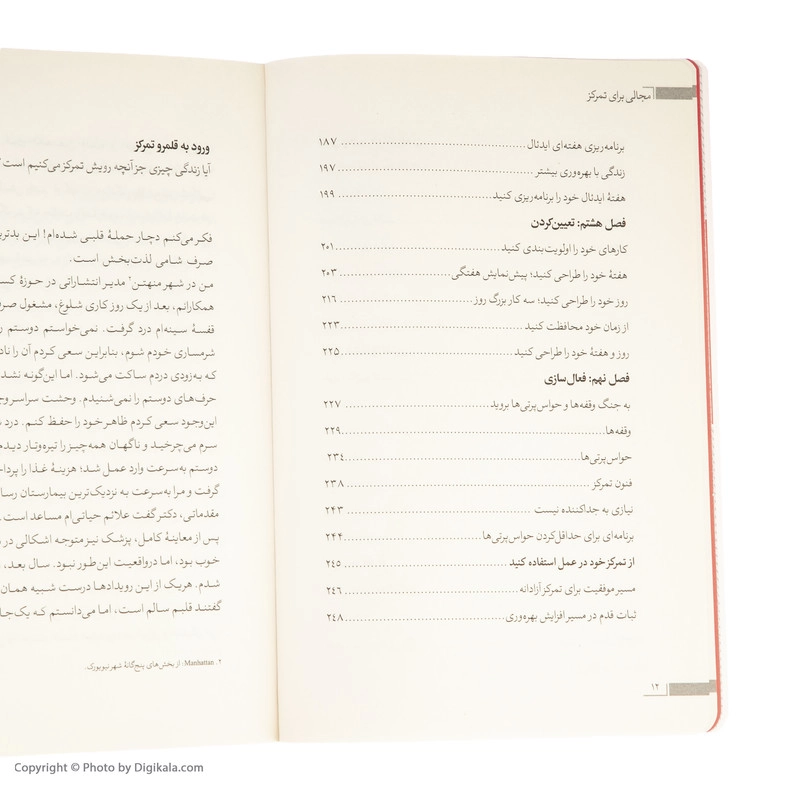 مجالی برای تمرکز
برنامه‌ریزی هفته‌ای ایدئال ........ ۱۸۷
زندگی با بهره‌وری بیشتر ........ ۱۹۷
هفتهٔ ایدئال خود را برنامه‌ریزی کنید ........ ۱۹۹
فصل هشتم: تعیین‌کردن
کارهای خود را اولویت‌بندی کنید ........ ۲۰۱
هفتهٔ خود را طراحی کنید؛ پیش‌نمایش هفتگی ........ ۲۰۳
روز خود را طراحی کنید؛ سه کار بزرگ روز ........ ۲۱۶
از زمان خود محافظت کنید ........ ۲۲۳
روز و هفتهٔ خود را طراحی کنید ........ ۲۲۵
فصل نهم: فعال‌سازی
به جنگ وقفه‌ها و حواس‌پرتی‌ها بروید ........ ۲۲۷
وقفه‌ها ........ ۲۲۹
حواس‌پرتی‌ها ........ ۲۳۴
فنون تمرکز ........ ۲۳۸
نیازی به جداکننده نیست ........ ۲۴۳
برنامه‌ای برای حداقل‌کردن حواس‌پرتی‌ها ........ ۲۴۴
از تمرکز خود در عمل استفاده کنید ........ ۲۴۵
مسیر موفقیت برای تمرکز آزادانه ........ ۲۴۶
ثبات قدم در مسیر افزایش بهره‌وری ........ ۲۴۸
۱۲
ورود به قلمرو تمرکز
آیا زندگی چیزی جز آنچه رویش تمرکز می‌کنیم است
فکر می‌کنم دچار حملهٔ قلبی شده‌ام! این
صرف شامی لذت‌بخش است.
من در شهر منهتن۲ مدیر انتشاراتی در حوزهٔ
همکارانم، بعد از یک روز کاری شلوغ، مشغول
قفسهٔ سینه‌ام درد گرفت. نمی‌خواستم دوستم
شرمساری خودم شوم، بنابراین سعی کردم آن را
که به‌زودی دردم ساکت می‌شود. اما این‌گونه نشد
حرف‌های دوستم را نمی‌شنیدم. وحشت سراسر
این‌وجود سعی کردم ظاهر خود را حفظ کنم. درد
سرم می‌چرخید و ناگهان همه‌چیز را تیره‌وتار دیدم
دوستم به‌سرعت وارد عمل شد؛ هزینهٔ غذا را
گرفت و مرا به‌سرعت به نزدیک‌ترین بیمارستان
مقدماتی، دکتر گفت علائم حیاتی‌ام مساعد است.
پس از معاینهٔ کامل، پزشک نیز متوجه اشکالی در
خوب بود، اما درواقعیت این‌طور نبود. سال بعد،
شدم. هریک از این رویدادها درست شبیه همان
گفتند قلبم سالم است، اما می‌دانستم که
۲. Manhattan: از بخش‌های پنج‌گانهٔ شهر نیویورک.
Copyright © Photo by Digikala.com